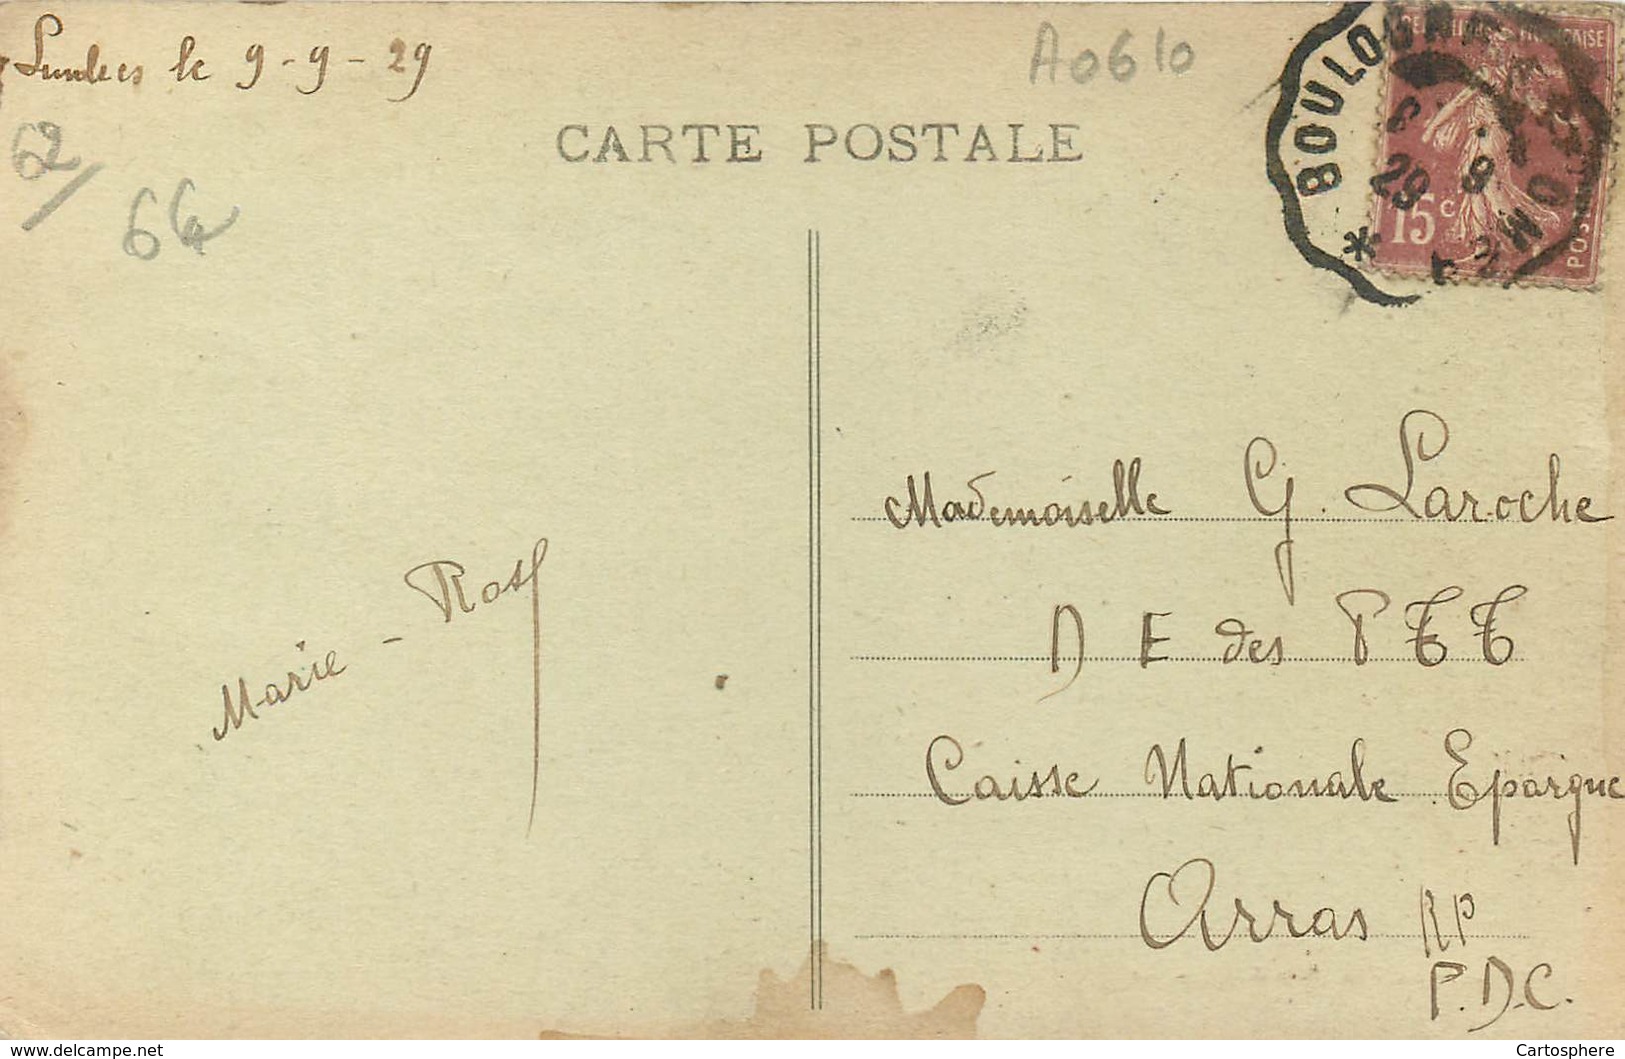 Lumbres le 9-9-29
A0610
62/
64
CARTE POSTALE
BOULOGNE
OMER
6 . 9
29
FRANÇAISE
15c
POSTES
Mademoiselle G. Laroche
D E des P T T
Caisse Nationale Epargne
Arras RP
P.D.C.
Marie-Rose
www.delcampe.net
Cartosphere